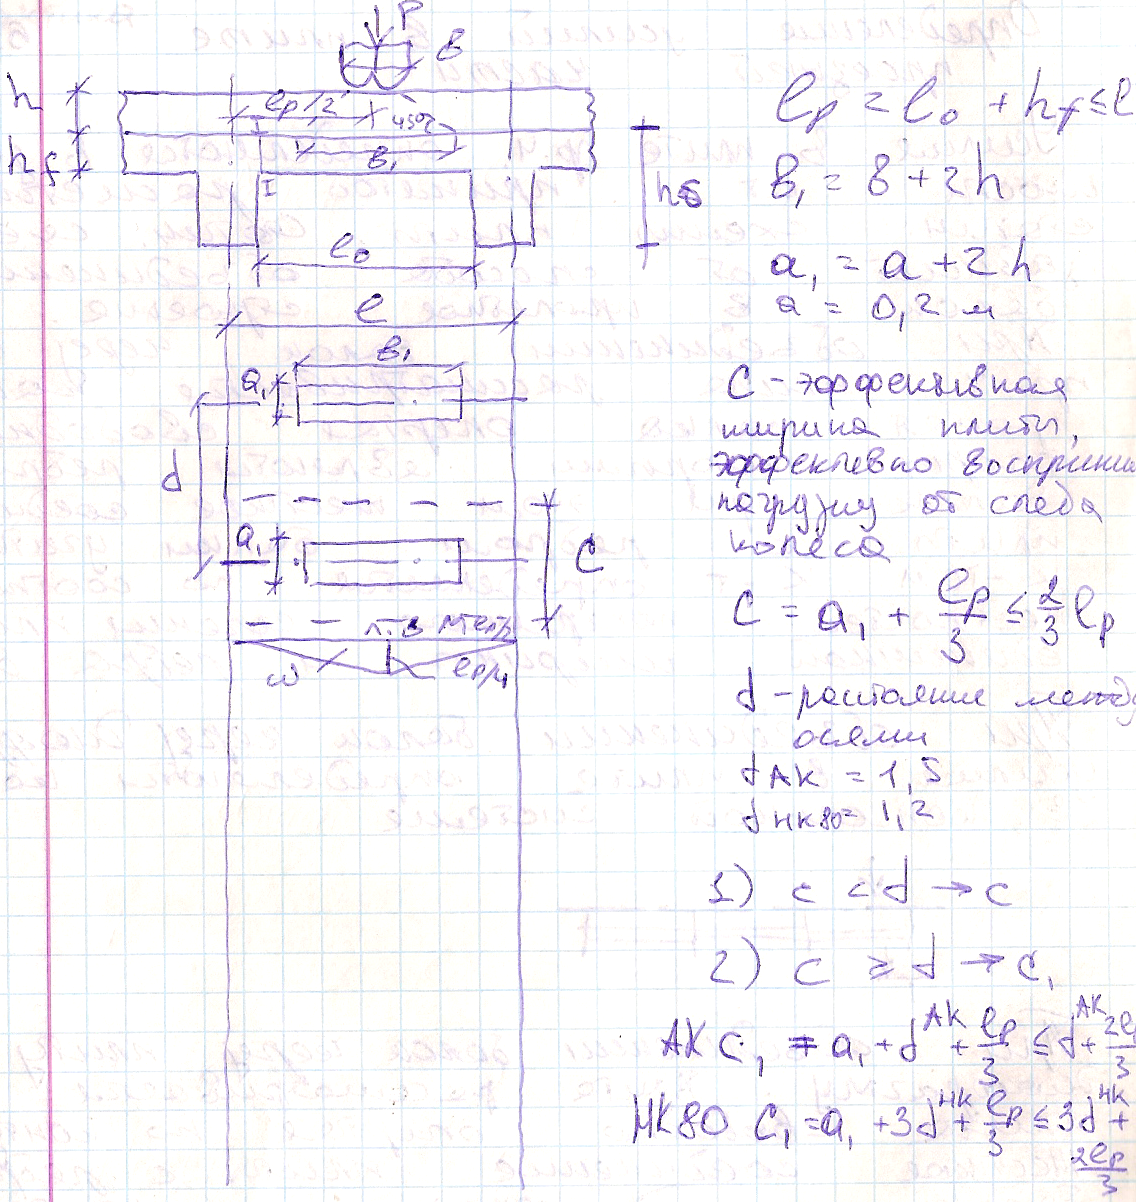 P
в
h
lp/2
45°
I
hf
в₁
I
hб
l₀
l
в₁
a₁
d
a₁
C
л.в Mlp/2
ω
lp/4
lp = l₀ + hf ≤ l
в₁ = в + 2h
a₁ = a + 2h
a = 0,2 м
C - эффективная
ширина плиты,
эффективно восприним
нагрузку от следа
колеса
C = a₁ + lp/3 ≤ 2/3 lp
d - растояние между
осями
d АК = 1,5
d НК80 = 1,2
1) c < d → c
2) c ≥ d → c₁
АК C₁ = a₁ + d АК + lp/3 ≤ d АК + 2lp/3
НК80 C₁ = a₁ + 3d НК + lp/3 ≤ 3d НК +
2lp/3